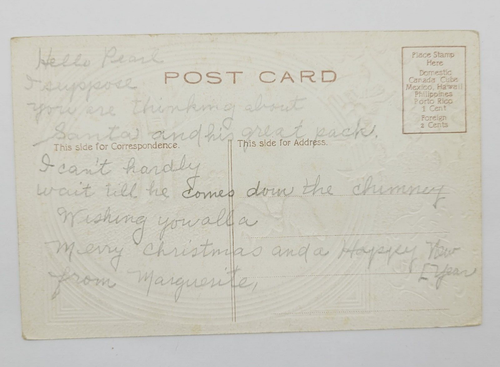 Hello Pearl
I suppose
POST CARD
you are thinking about
Santa and his great sack.
This side for Correspondence.
This side for Address.
I can't hardly
wait till he comes down the chimney
Wishing you all a
Merry Christmas and a Happy New
Year
from Marguerite,
Place Stamp
Here
Domestic
Canada Cuba
Mexico, Hawaii
Philippines
Porto Rico
1 Cent
Foreign
2 Cents